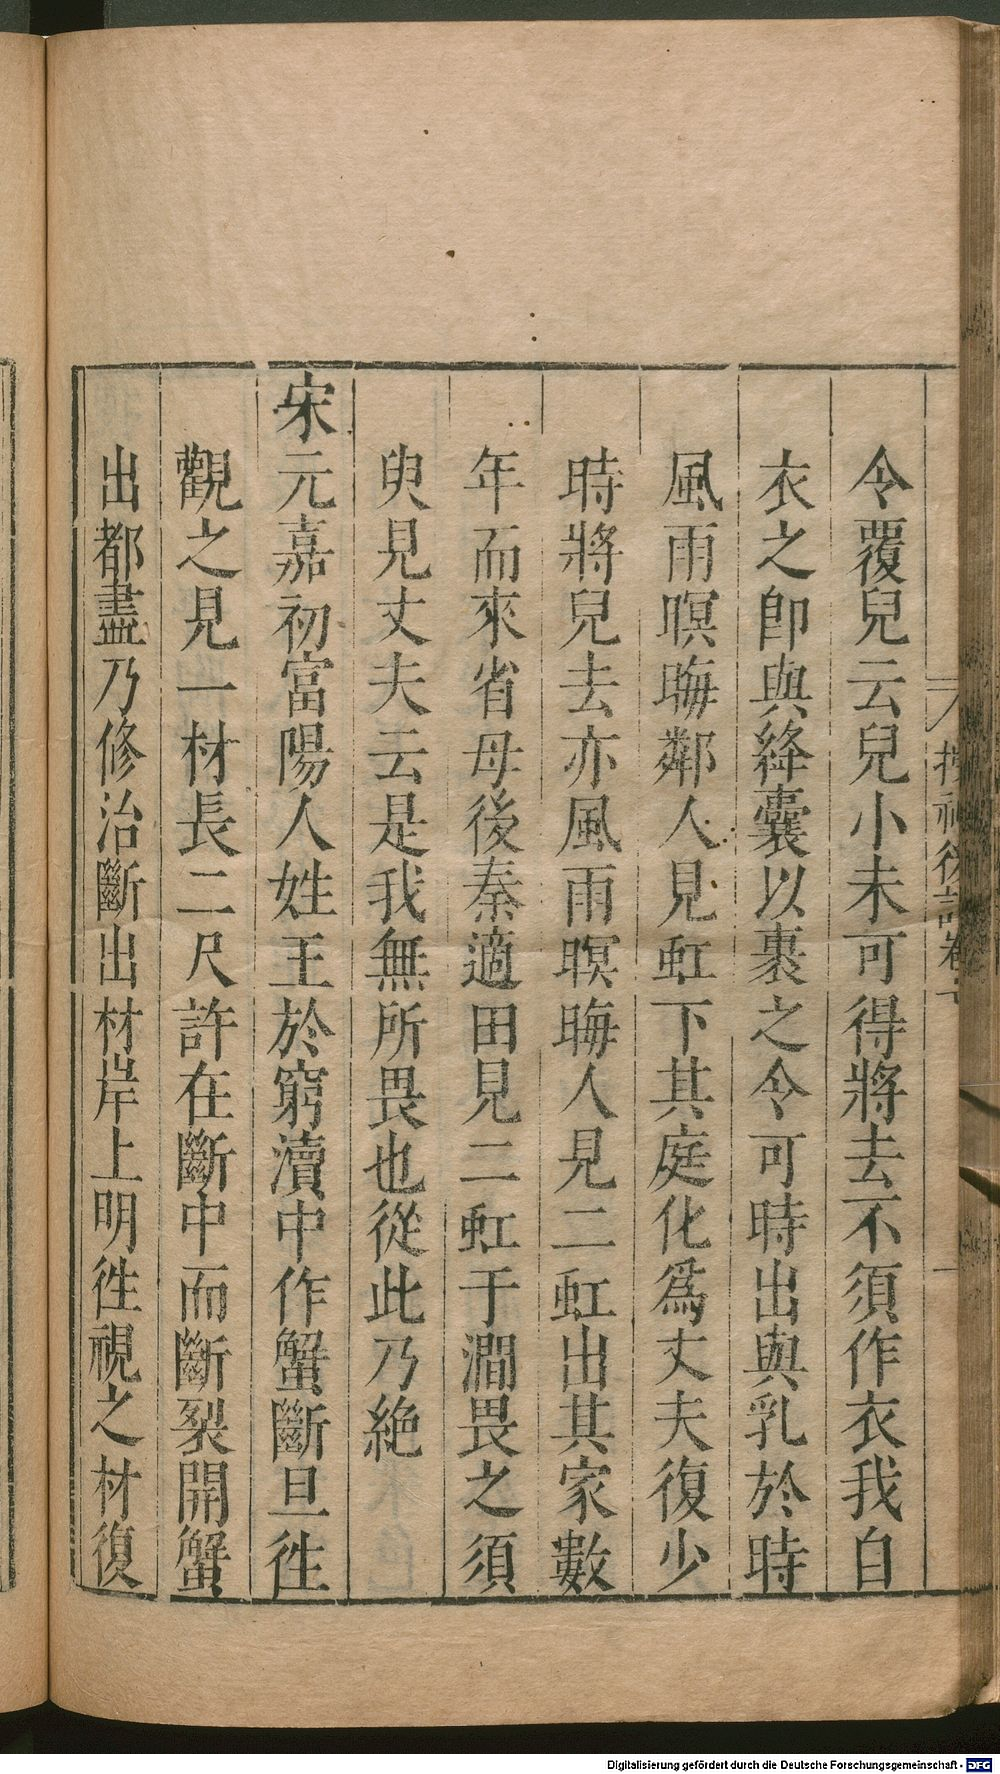 令覆兒云兒小未可得將去不須作衣我自
衣之卽與絳囊以裹之令可時出與乳於時
風雨暝晦鄰人見虹下其庭化爲丈夫復少
時將兒去亦風雨暝晦人見二虹出其家數
年而來省母後秦適田見二虹于澗畏之須
臾見丈夫云是我無所畏也從此乃絶
宋元嘉初富陽人姓王於窮瀆中作蟹斷旦徃
觀之見一材長二尺許在斷中而斷裂開蟹
出都盡乃修治斷出材岸上明徃視之材復
Digitalisierung gefördert durch die Deutsche Forschungsgemeinschaft - DFG